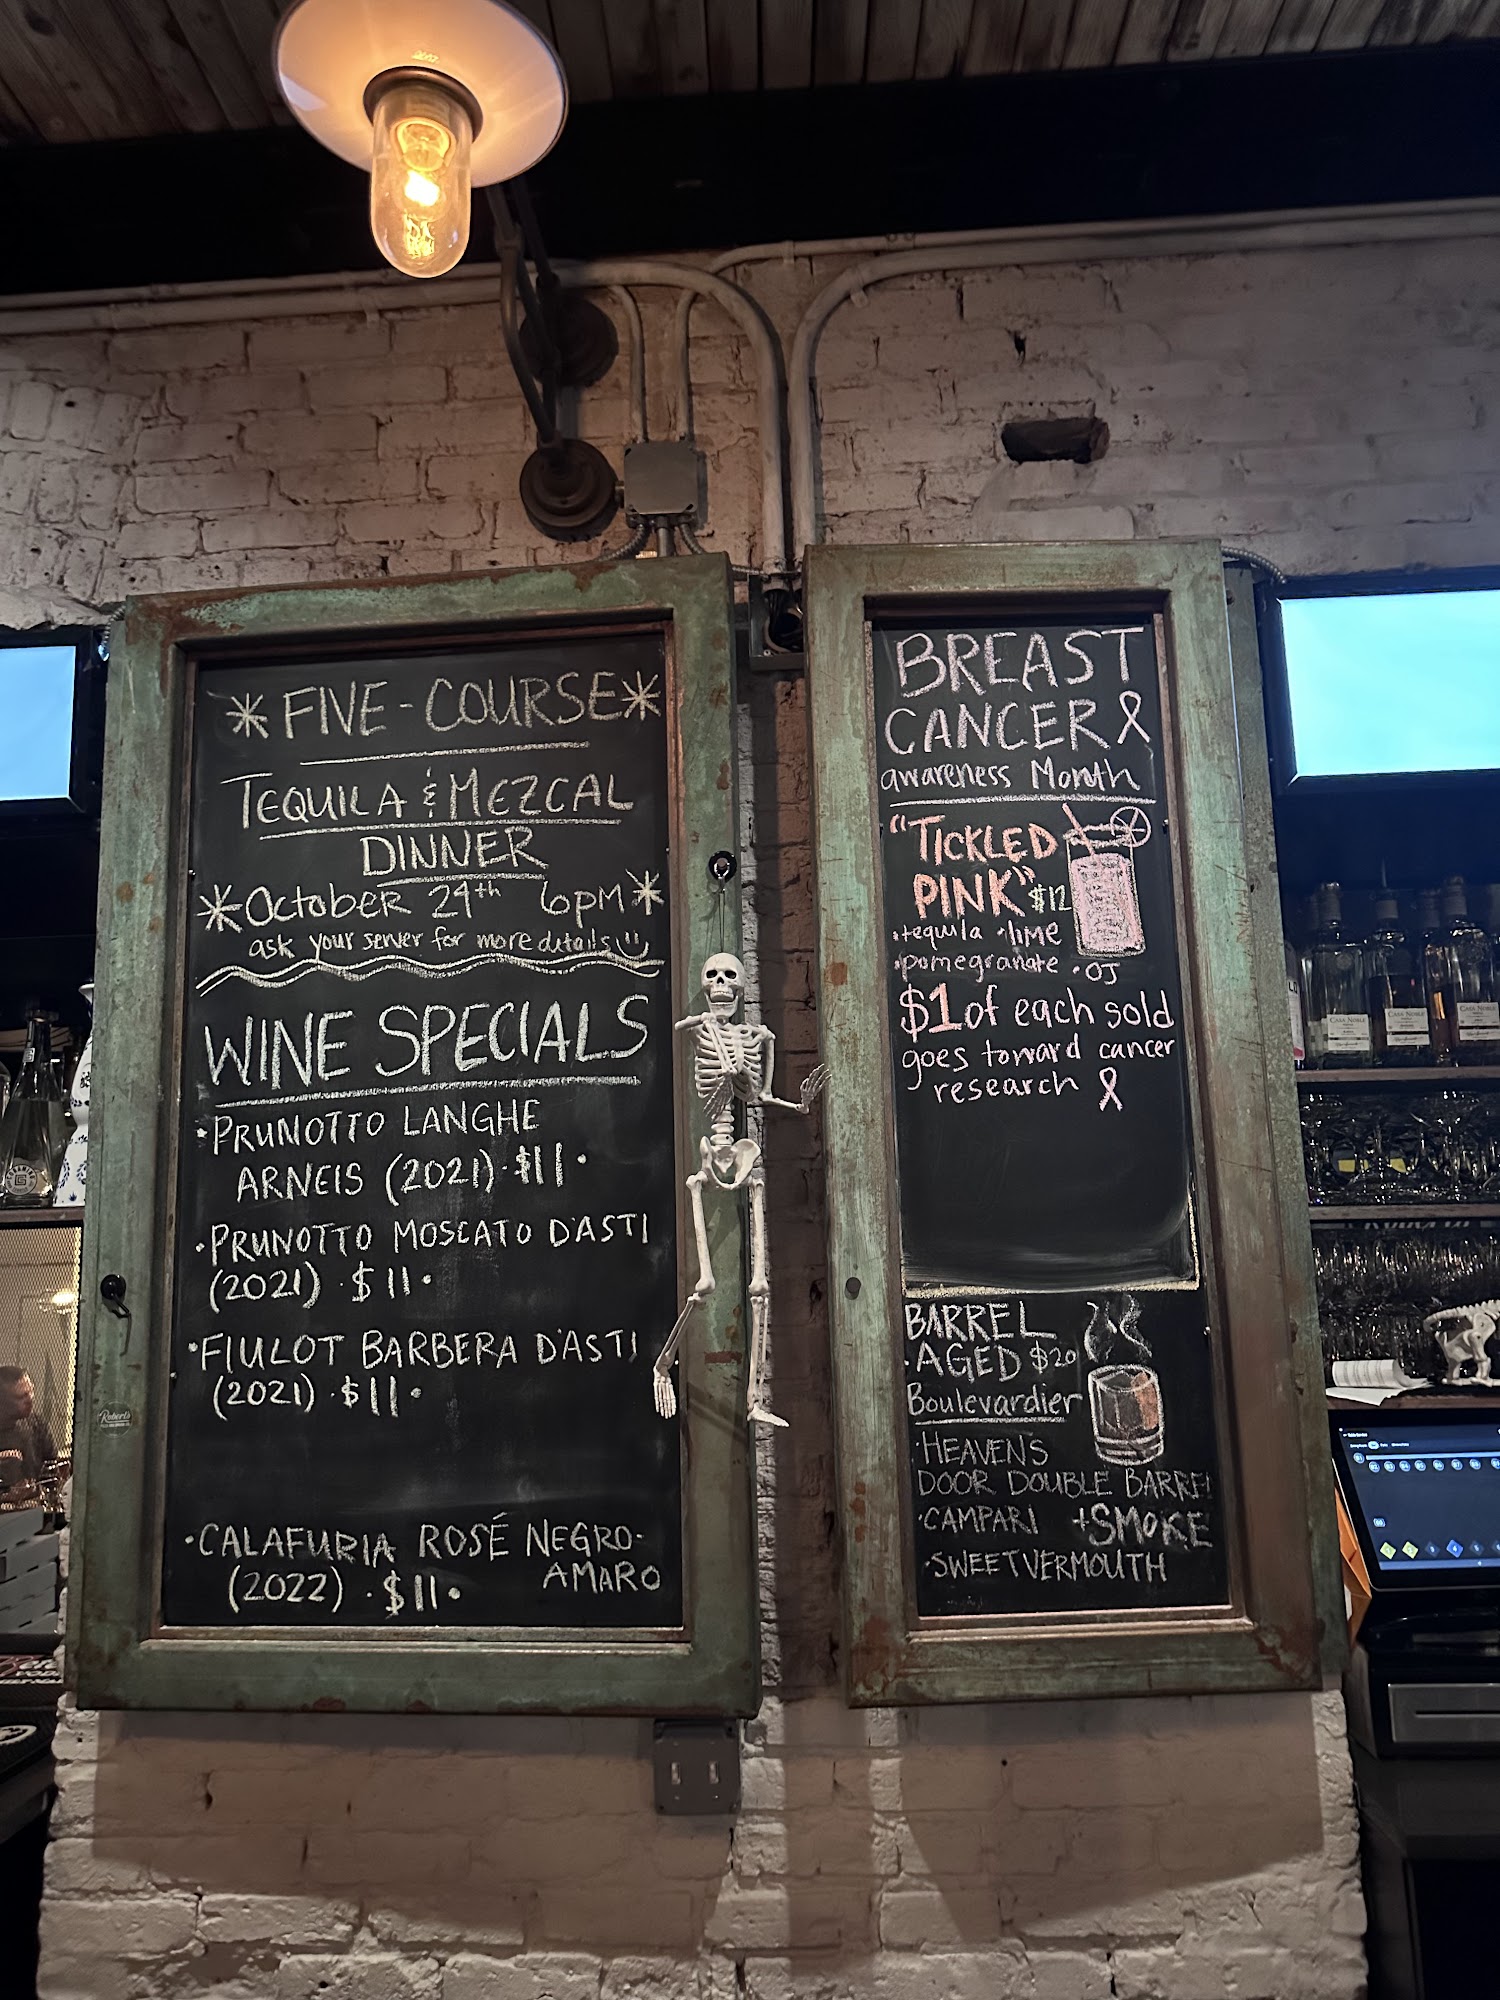 *FIVE-COURSE*
TEQUILA & MEZCAL
DINNER
*October 24th 6pm*
ask your server for more details
WINE SPECIALS
·PRUNOTTO LANGHE
ARNEIS (2021)·$11·
·PRUNOTTO MOSCATO D'ASTI
(2021)·$11·
·FIULOT BARBERA D'ASTI
(2021)·$11·
·CALAFURIA ROSÉ NEGRO-
AMARO
(2022)·$11·
BREAST
CANCER
awareness Month
"TICKLED
PINK" $12
·tequila ·lime
·pomegranate ·OJ
$1 of each sold
goes toward cancer
research
BARREL
·AGED $20
Boulevardier
·HEAVENS
DOOR DOUBLE BARREL
·CAMPARI +SMOKE
·SWEET VERMOUTH
Robert's
CASA NOBLE
CASA NOBLE
CASA NOBLE